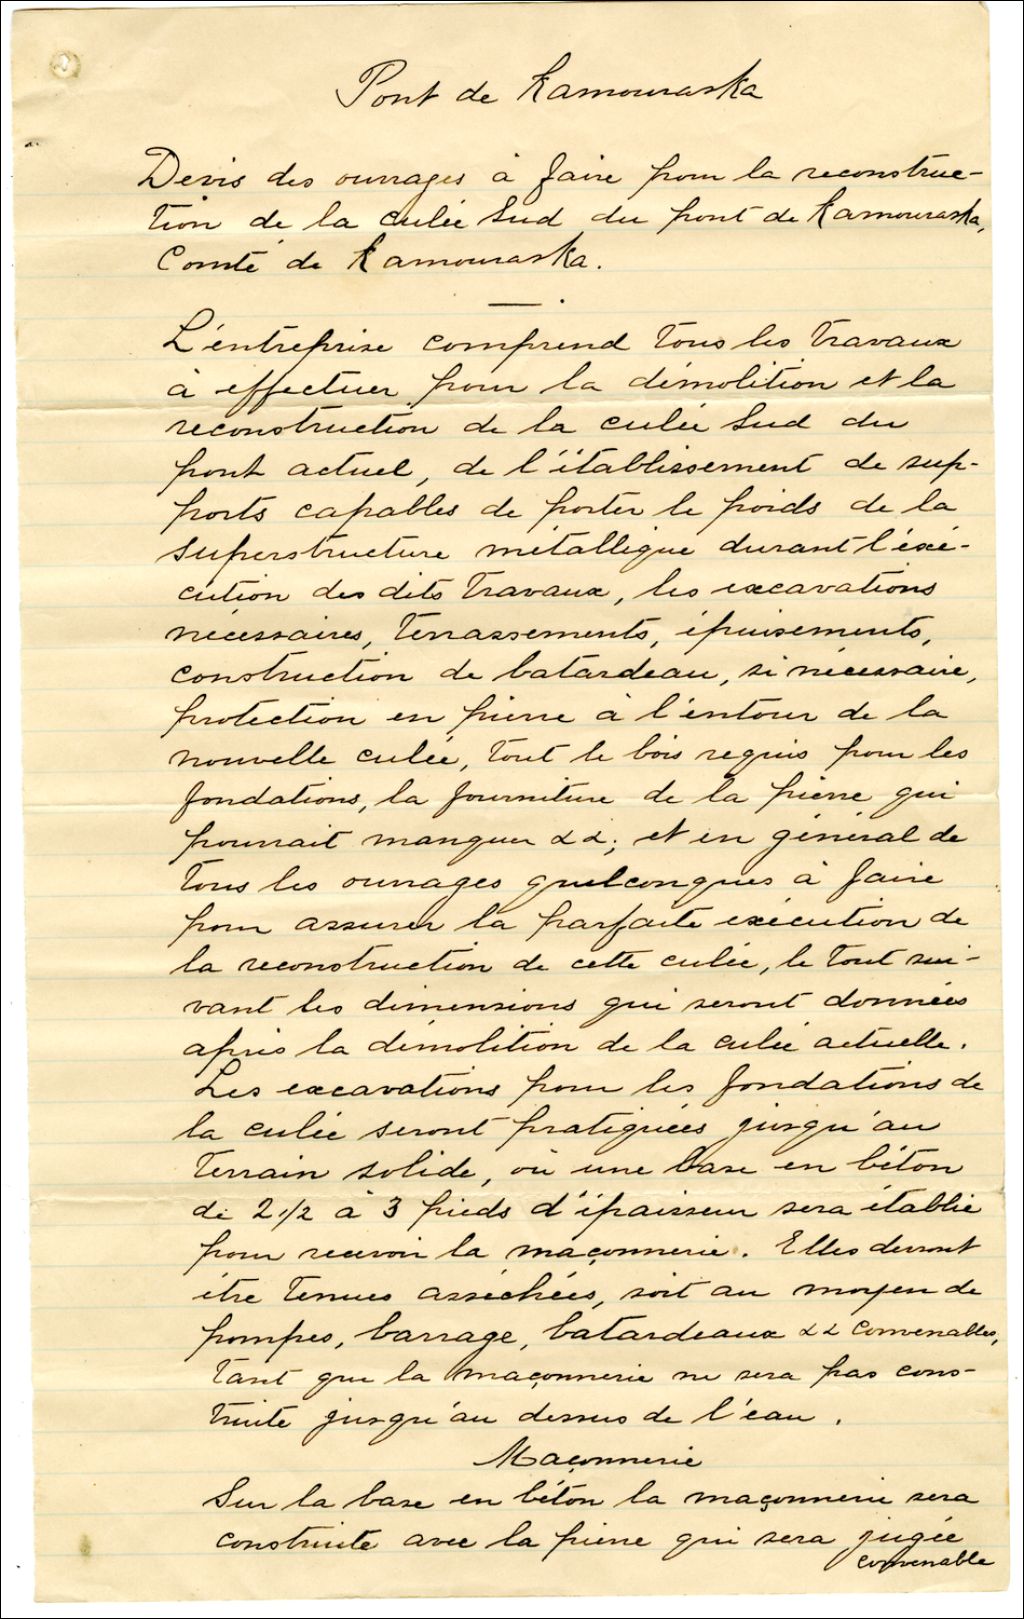 Pont de Kamouraska
Devis des ouvrages à faire pour la reconstruc-
tion de la culée Sud du pont de Kamouraska,
Comté de Kamouraska.
L'entreprise comprend tous les travaux
à effectuer pour la démolition et la
reconstruction de la culée Sud du
pont actuel, de l'établissement de sup-
ports capables de porter le poids de la
superstructure métallique durant l'éxé-
cution des dits travaux, les excavations
nécessaires, terrassements, épuisements,
construction de batardeau, si nécessaire,
protection en pierre à l'entour de la
nouvelle culée, tout le bois requis pour les
fondations, la fourniture de la pierre qui
pourrait manquer &&; et en général de
tous les ouvrages quelconques à faire
pour assurer la parfaite exécution de
la reconstruction de cette culée, le tout sui-
vant les dimensions qui seront données
après la démolition de la culée actuelle.
Les excavations pour les fondations de
la culée seront pratiquées jusqu'au
terrain solide, où une base en béton
de 2 1/2 à 3 pieds d'épaisseur sera établie
pour recevoir la maçonnerie. Elles devront
être tenues asséchées, soit au moyen de
pompes, barrage, batardeaux && convenables,
tant que la maçonnerie ne sera pas cons-
truite jusqu'au dessus de l'eau.
Maçonnerie
Sur la base en béton la maçonnerie sera
construite avec la pierre qui sera jugée
convenable